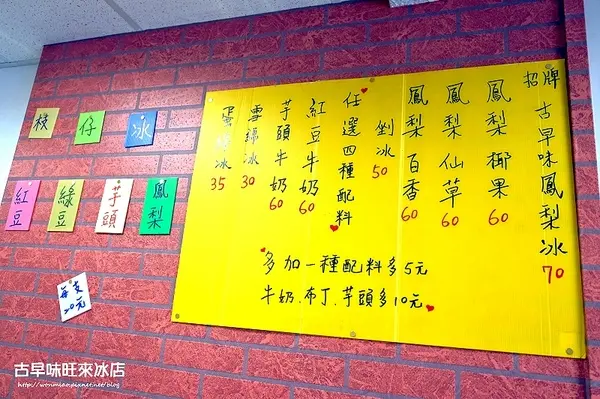 招牌 古早味鳳梨冰 70
鳳梨 椰果 60
鳳梨 仙草 60
鳳梨 百香 60
剉冰 50
任選四種配料
紅豆牛奶 60
芋頭牛奶 60
雪綿冰 30
蛋 冰 35
多加一種配料多5元
牛奶.布丁.芋頭多10元
枝 仔 冰
紅豆 綠豆 芋頭 鳳梨
每支
20元
古早味旺來冰店